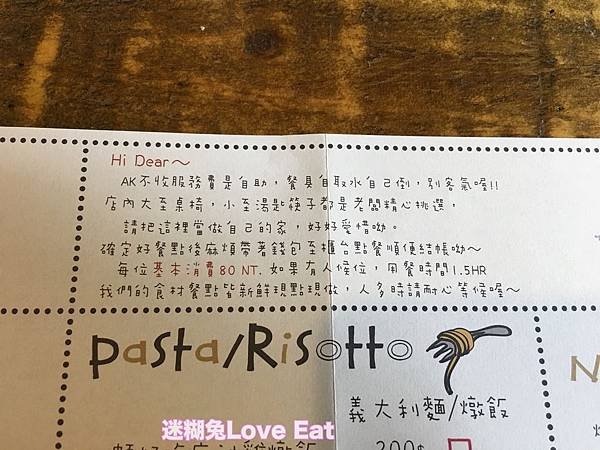 Hi Dear～
AK不收服務費是自助，餐具自取水自己倒，別客氣喔!!
店內大至桌椅，小至湯匙筷子都是老闆精心挑選，
請把這裡當做自己的家，好好愛惜呦。
確定好餐點後麻煩帶著錢包至櫃台點餐順便結帳呦～
每位基本消費80 NT. 如果有人候位，用餐時間1.5HR
我們的食材餐點皆新鮮現點現做，人多時請耐心等候喔～
Pasta/Risotto
義大利麵/燉飯
迷糊兔Love Eat
200$